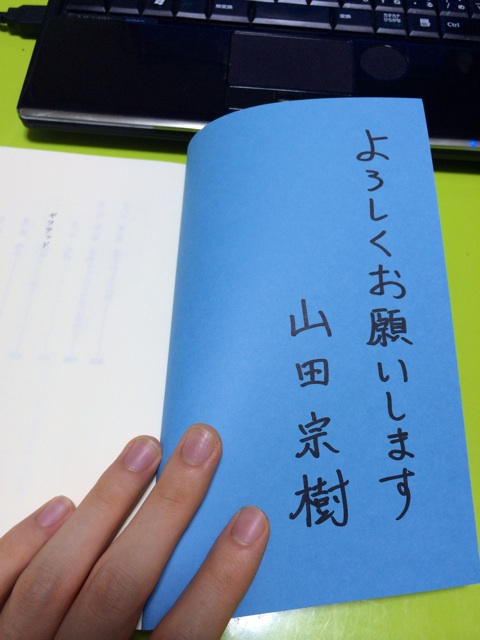 よろしくお願いします
山田宗樹
Ctrl